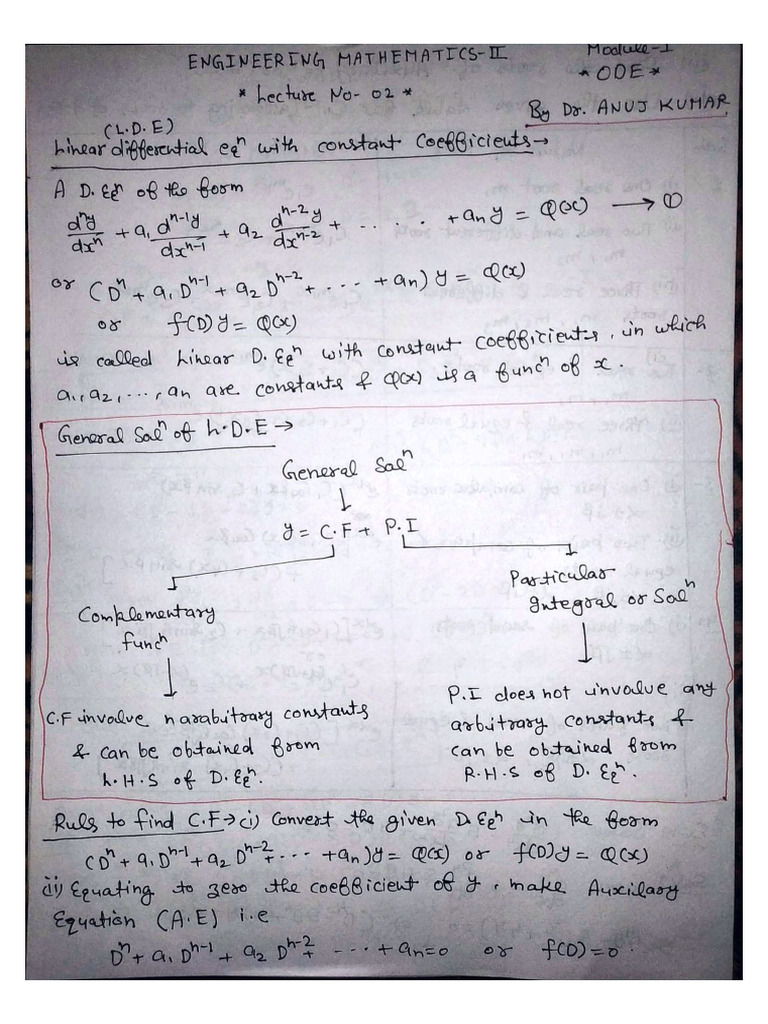 ENGINEERING MATHEMATICS-II
Module-I
* Lecture No- 02 *
* ODE *
By Dr. ANUJ KUMAR
(L.D.E)
Linear differential eqⁿ with constant coefficients→
A D.Eqⁿ of the form
dⁿy/dxⁿ + a₁ dⁿ⁻¹y/dxⁿ⁻¹ + a₂ dⁿ⁻²y/dxⁿ⁻² + ..... + aₙy = Q(x) → ①
or (Dⁿ + a₁Dⁿ⁻¹ + a₂Dⁿ⁻² + ... + aₙ) y = Q(x)
or f(D)y = Q(x)
is called Linear D.Eqⁿ with constant coefficients, in which
a₁, a₂, ..., aₙ are constants & Q(x) is a funcⁿ of x.
General Solⁿ of L.D.E →
General Solⁿ
↓
y = C.F + P.I
Complementary
funcⁿ
↓
C.F involve n arabitrary constants
& can be obtained from
L.H.S of D.Eqⁿ.
Particular
Integral or Solⁿ
↓
P.I does not involve any
arbitrary constants &
can be obtained from
R.H.S of D.Eqⁿ.
Ruls to find C.F→ (i) Convert the given D.Eqⁿ in the form
(Dⁿ + a₁Dⁿ⁻¹ + a₂Dⁿ⁻² + ... + aₙ)y = Q(x) or f(D)y = Q(x)
(ii) Equating to zero the coefficient of y, make Auxilary
Equation (A.E) i.e
Dⁿ + a₁Dⁿ⁻¹ + a₂Dⁿ⁻² + ... + aₙ=0 or f(D)=0.